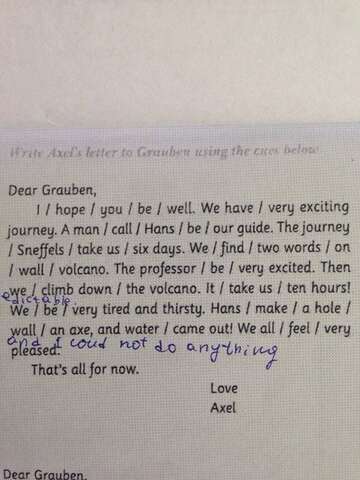 Write Axel's letter to Grauben using the cues below
Dear Grauben,
I / hope / you / be / well. We have / very exciting
journey. A man / call / Hans / be / our guide. The journey
/ Sneffels / take us / six days. We / find / two words / on
/ wall / volcano. The professor / be / very excited. Then
we / climb down / the volcano. It / take us / ten hours!
edictable.
We / be / very tired and thirsty. Hans / make / a hole /
wall / an axe, and water / came out! We all / feel / very
and I coud not do anything
pleased.
That's all for now.
Love
Axel
Dear Grauben,